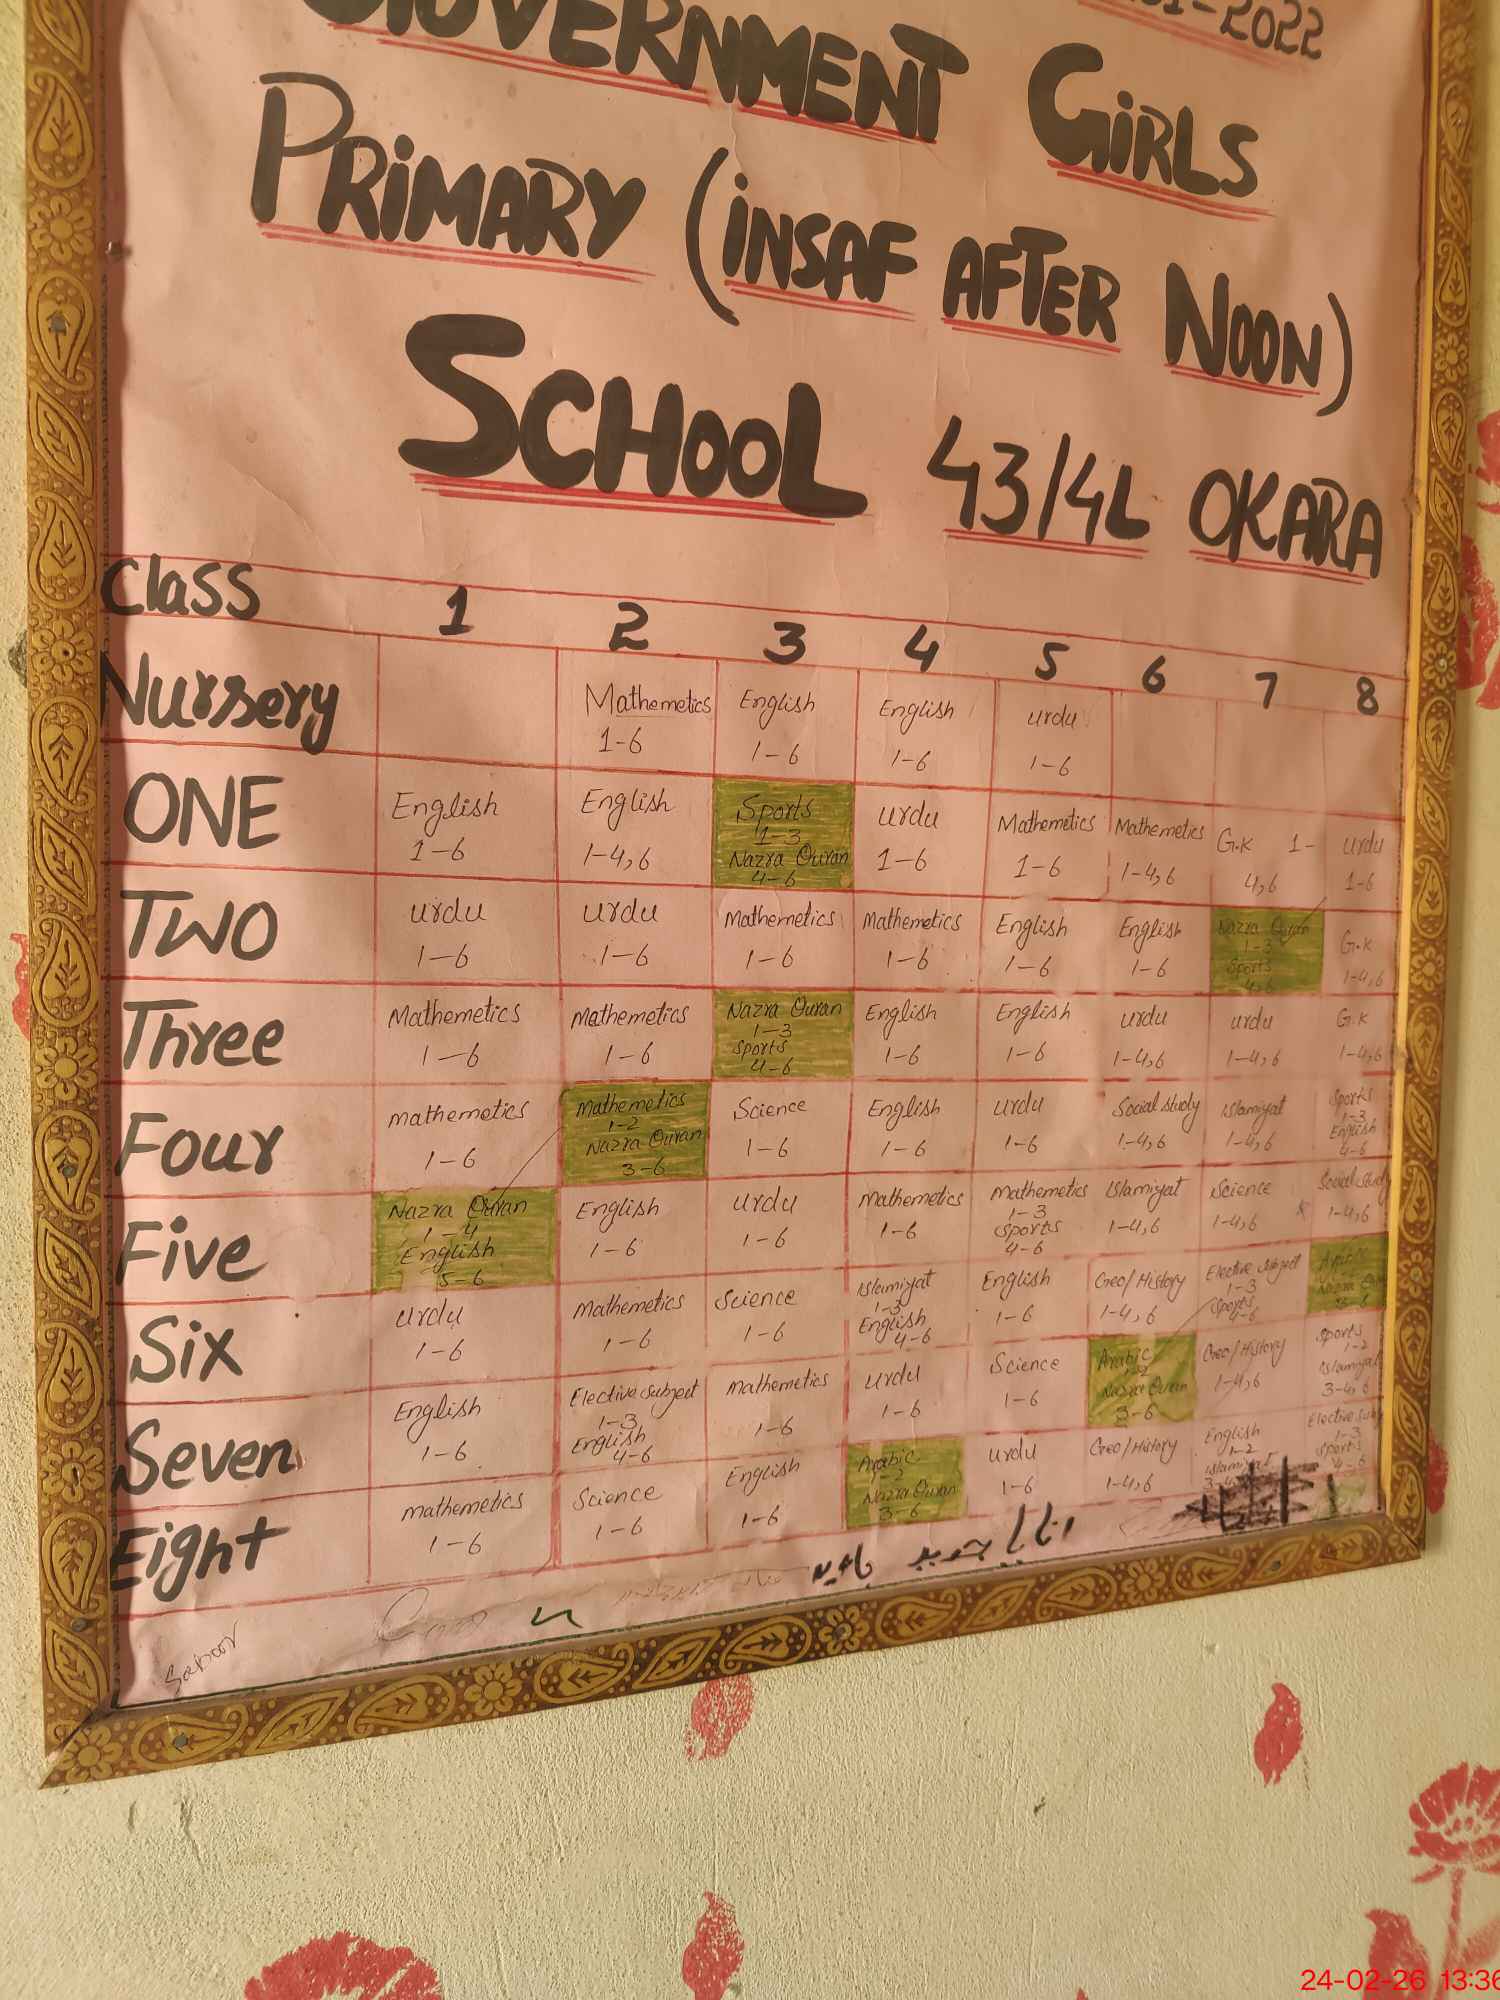 -2022
GOVERNMENT GiRLS
PRiMARY (iNSAF AFTER NOON)
SCHOOL 43/4L OKARA
Class 1 2 3 4 5 6 7 8
Nursery Mathemetics 1-6 English 1-6 English 1-6 urdu 1-6
ONE English 1-6 English 1-4,6 Sports 1-3 Nazra Quran 4-6 urdu 1-6 Mathemetics 1-6 Mathemetics 1-4,6 G.K 1-4,6 urdu 1-6
TWO urdu 1-6 urdu 1-6 Mathemetics 1-6 Mathemetics 1-6 English 1-6 English 1-6 Nazra Quran 1-3 Sports 4-6 G.K 1-4,6
Three Mathemetics 1-6 Mathemetics 1-6 Nazra Quran 1-3 Sports 4-6 English 1-6 English 1-6 urdu 1-4,6 urdu 1-4,6 G.K 1-4,6
Four mathemetics 1-6 Mathemetics 1-2 Nazra Quran 3-6 Science 1-6 English 1-6 urdu 1-6 Social study 1-4,6 islamiyat 1-4,6 Sports 1-3 English 4-6
Five Nazra Quran 1-4 English 5-6 English 1-6 urdu 1-6 Mathemetics 1-6 Mathemetics 1-3 Sports 4-6 Islamiyat 1-4,6 Science 1-4,6 Social Study 1-4,6
Six urdu 1-6 Mathemetics 1-6 Science 1-6 Islamiyat 1-3 English 4-6 English 1-6 Geo/History 1-4,6 Elective subject 1-3 Sports 4-6
Seven English 1-6 Elective subject 1-3 English 4-6 Mathemetics 1-6 urdu 1-6 Science 1-6 Arabic 1-2 Nazra Quran 3-6 Geo/History 1-4,6 Sports 1-2 Islamiyat 3-4,6
Eight mathemetics 1-6 Science 1-6 English 1-6 Arabic 1-2 Nazra Quran 3-6 urdu 1-6 Geo/History 1-4,6 English 1-2 islamiyat Elective sub 1-3 Sports 4-6
Saboor
24-02-26 13:36